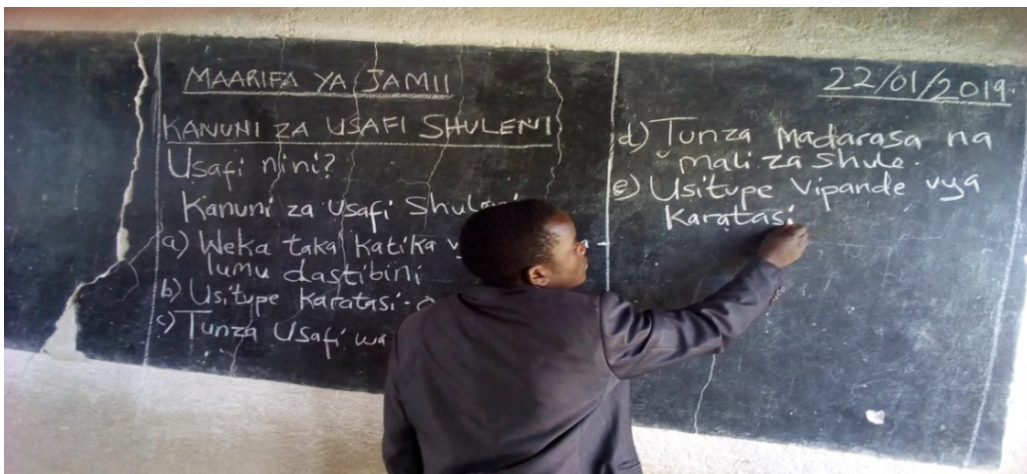 MAARIFA YA JAMII
KANUNI ZA USAFI SHULENI
Usafi nini?
Kanuni za Usafi
a) Weka taka katika
lumu dastibini
b) Usitupe Karatasi.
c) Tunza Usafi wa
22/01/2019.
d) Tunza Madarasa na
mali za shule.
e) Usitupe Vipande vya
Karatasi